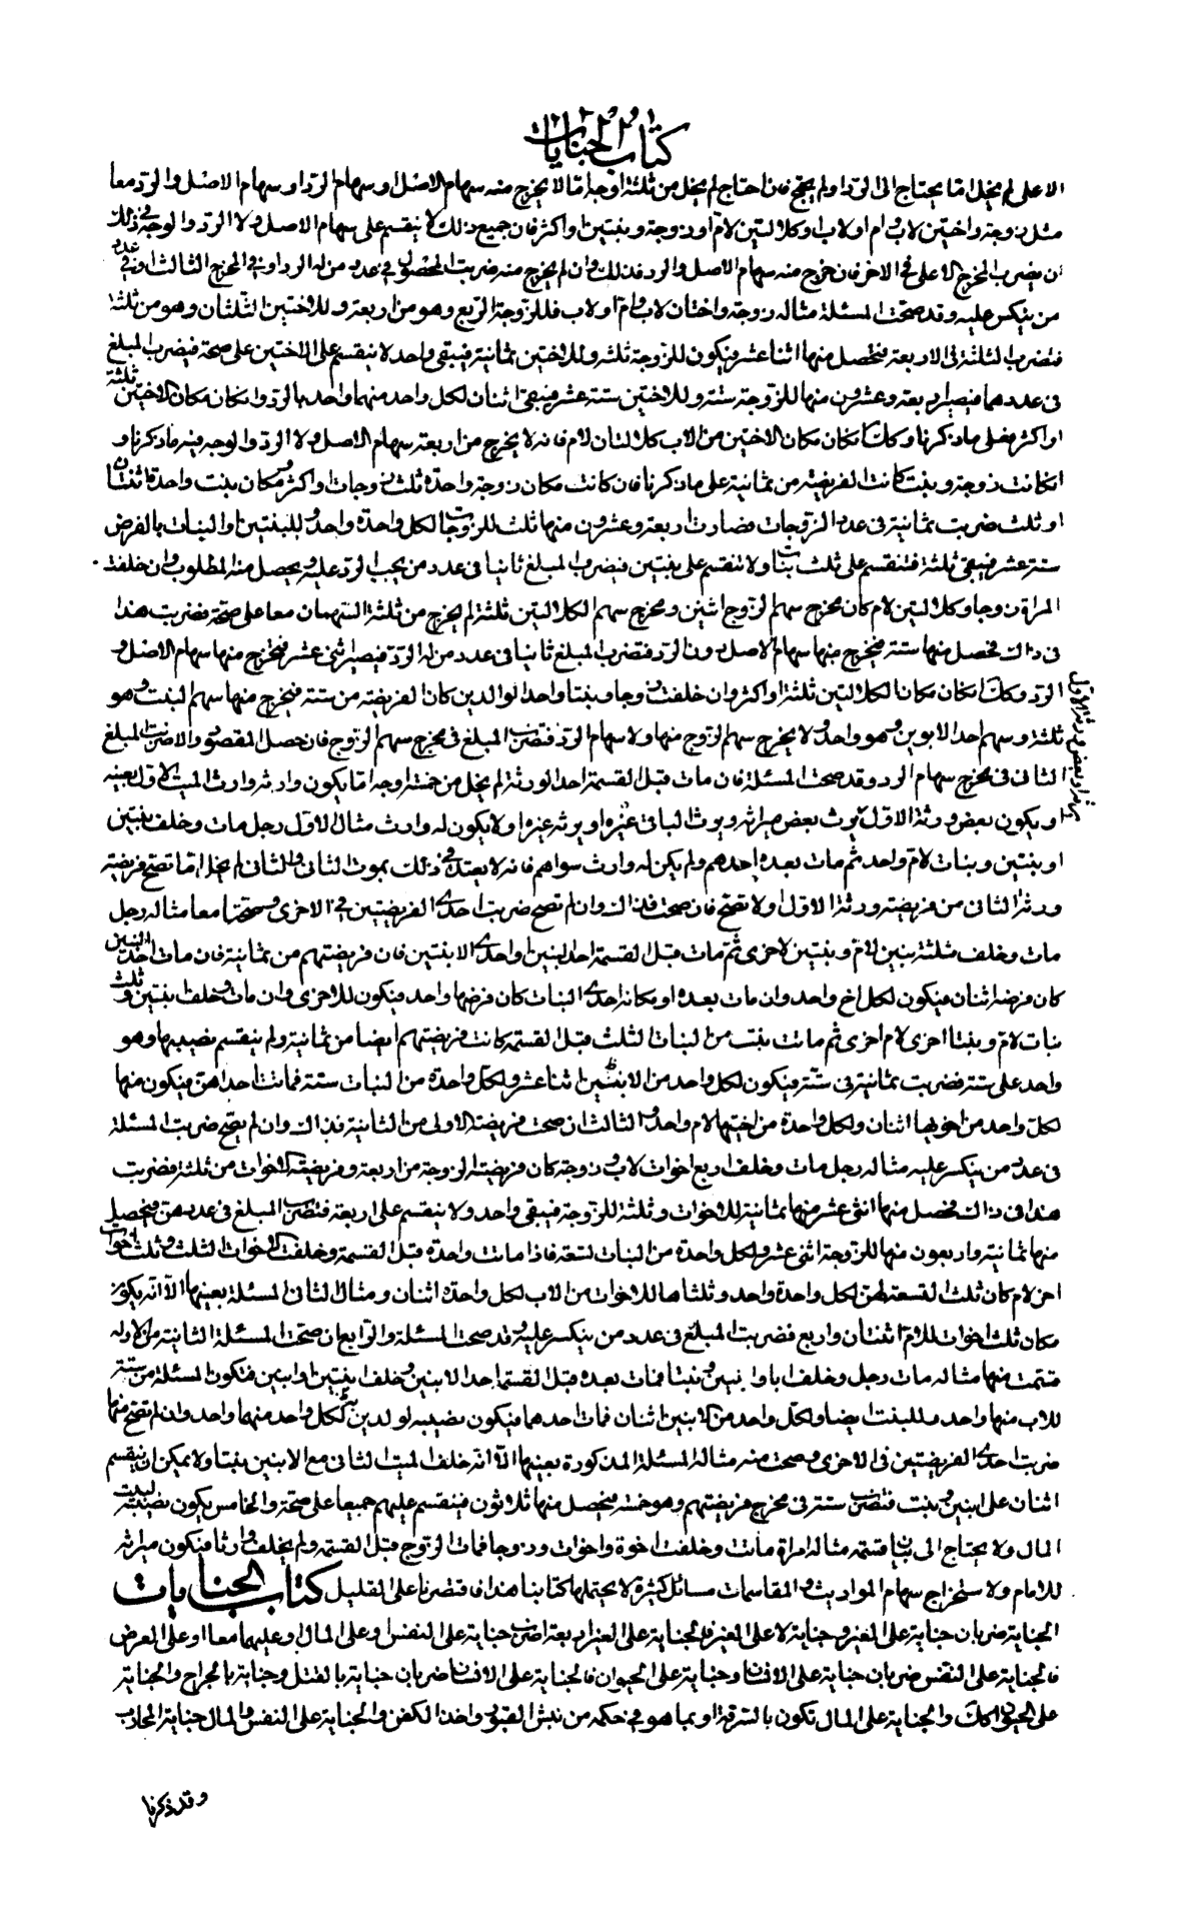 كتاب الجنايات
الاعلى لم يخل اما يحتاج الى الرد او لم يحتج فان احتاج لم يخل من ثلثة اوجه اما لا يخرج منه سهام الاصل او سهام الرد او سهام الاصل والرد معا
مثل زوجة واختين لاب وام او لاب او كلالتين لام او زوجة وبنتين او اكثر فان جميع ذلك لا ينقسم على سهام الاصل ولا الرد والوجه في ذلك
ان يضرب المخرج الاعلى في الاخر فان خرج منه سهام الاصل والرد فذلك وان لم يخرج منه ضربت المحصول في عدد من له الرد او في المخرج الثالث او في عدد
من ينكسر عليه وقد صحت المسئلة مثاله زوجة واختان لاب وام او لاب فللزوجة الربع وهو من اربعة وللاختين الثلثان وهو من ثلثة
فتضرب الثلثة في الاربعة فتحصل منها اثنا عشر فيكون للزوجة ثلثة وللاختين ثمانية فيبقى واحد لا ينقسم على الاختين على صحة فيضرب المبلغ
في عددهما فيصير اربعة وعشرون منها للزوجة ستة وللاختين ستة عشر فيبقى اثنان لكل واحد منهما واحد بالرد وان كان مكان الاختين ثلثة
او اكثر فعلى ما ذكرنا وكذلك ان كان مكان الاختين من الاب كلالتان لام فانه لا يخرج من اربعة سهام الاصل ولا الرد والوجه فيه ما ذكرنا و
ان كانت زوجة وبنت كانت الفريضة من ثمانية على ما ذكرنا فان كانت مكان زوجة واحدة ثلث زوجات او اكثر ومكان بنت واحدة اثنتان
او ثلث ضربت ثمانية في عدد الزوجات فصارت اربعة وعشرون منها ثلث للزوجات لكل واحدة واحد وللبنتين او البنات بالفرض
ستة عشر فيبقى ثلثة فتنقسم على ثلث بنات ولا تنقسم على بنتين فيضرب المبلغ ثانيا في عدد من يجب الرد عليه ويحصل منه المطلوب وان خلفت
المراة زوجا وكلالتين لام كان مخرج سهم الزوج اثنين ومخرج سهم الكلالتين ثلثة لم يخرج من ثلثة السهمان معا على صحة فضربت هذا
في ذاك فحصل منها ستة فيخرج منها سهام الاصل دون الرد فتضرب المبلغ ثانيا في عدد من له الرد فيصير اثنى عشر فيخرج منها سهام الاصل و
الرد وكذلك ان كان مكان الكلالتين ثلثة او اكثر وان خلفت زوجا وبنتا واحد الوالدين كان الفريضة من ستة فيخرج منها سهم البنت وهو
ثلثة وسهم احد الابوين وهو واحد ولا يخرج سهم الزوج منها ولا سهام الرد فتضرب المبلغ في مخرج سهم الزوج فان حصل المقصود والا ضربت المبلغ
الثانى في مخرج سهام الرد وقد صحت المسئلة فان مات قبل القسمة احد الورثة لم يخل من خمسة اوجه اما يكون وارثه وارث الميت الاول بعينه
او يكون بعض ورثة الاول يرث بعض ميراثه ويرث الباقى غيره او يرثه غيره او لا يكون له وارث مثال الاول رجل مات وخلف بنتين
او بنتين وبنات لام واحد ثم مات بعده احدهم ولم يكن له وارث سواهم فانه لا يعتد في ذلك بموت الثانى والثانى لم يخل اما تصح فريضة
ورثة الثانى من فريضة ورثة الاول او لا تصح فان صحت فذاك وان لم تصح ضربت احدى الفريضتين في الاخرى وصحتها معا مثاله رجل
مات وخلف ثلثة بنين لام وبنتين لاخرى ثم مات قبل القسمة احد البنين او احدى الابنتين فان فريضتهم من ثمانية فان مات احد البنين
كان فرضه اثنان فيكون لكل اخ واحد وان مات بعده او مكانه احدى البنات كان فرضها واحد فيكون للاخرى وان مات وخلف بنتين وثلث
بنات لام وبنتا اخرى لام اخرى ثم ماتت بنت من البنات الثلث قبل القسمة كانت فريضتهم ايضا من ثمانية ولم ينقسم نصيبها وهو
واحد على ستة فضربت ثمانية في ستة فيكون لكل واحد من الابنين اثنا عشر ولكل واحدة من البنات ستة فماتت احداهن فيكون منها
لكل واحد من اخويها اثنان ولكل واحدة من اختيها لام واحد والثالث ان صحت فريضة الاولى من الثانية فذاك وان لم يصح ضربت المسئلة
في عدد من ينكسر عليه مثاله رجل مات وخلف اربع اخوات لاب وزوجة كان فريضة الزوجة من اربعة وفريضة الاخوات من ثلثة فضربت
هذا في ذاك فحصل منها اثنى عشر منها ثمانية للاخوات وثلثة للزوجة فيبقى واحد ولا ينقسم على اربعة فتضرب المبلغ في عددهن فيحصل
منها ثمانية واربعون منها للزوجة اثنى عشر ولكل واحدة من البنات تسعة فاذا ماتت واحدة قبل القسمة وخلفت الاخوات الثلث وثلث اخوات
اخر لام كان ثلث التسعة لهن لكل واحدة واحد وثلثاها للاخوات من الاب لكل واحدة اثنان ومثال الثانى المسئلة بعينها الا انه يكون
مكان ثلث اخوات للام اثنتان واربع فضربت المبلغ في عدد من ينكسر عليه وقد صحت المسئلة والرابع ان صحت المسئلة الثانية من الاولة
قسمت منها مثاله مات رجل وخلف ابا وابنين وبنتا فمات بعده قبل القسمة احد الابنين وخلف ابنتين او ابنين فتكون المسئلة من ستة
للاب منها واحد وللبنت ايضا ولكل واحد من الابنين اثنان فمات احدهما فيكون نصيبه لولدين لكل واحد منهما واحد وان لم تصح منها
ضربت احدى الفريضتين في الاخرى وصحت منه مثاله المسئلة المذكورة بعينها الا انه خلف الميت الثانى مع الابنين بنتا ولا يمكن ان ينقسم
اثنان على ابنين وبنت فتضرب ستة في مخرج فريضتهم وهو خمسة فيحصل منها ثلاثون فينقسم عليهم جميعا على صحة والخامس يكون نصيبه لبيت
المال ولا يحتاج الى بيان قسمته مثاله امراة ماتت وخلفت اخوة واخوات وزوجا فمات الزوج قبل القسمة ولم يخلف وارثا فيكون ميراثه
للامام ولاستخراج سهام المواريث والمقاسمات مسائل كثيرة لا يحتملها كتابنا هذا فاقتصرنا على القليل كتاب الجنايات
الجناية ضربان جناية على الغير وجناية لا على الغير فالجناية على الغير اربعة اضرب جناية على النفس وعلى المال وعليهما معا وعلى العرض
فالجناية على النفس ضربان جناية على الانسان وجناية على الحيوان فالجناية على الانسان ضربان جناية بالقتل وجناية بالجراح والجناية
على الحيوان كذلك والجناية على المال تكون بالسرقة او بما هو في حكمه من نبش القبر واخذ الكفن والجناية على النفس والمال جناية المحارب
وقد ذكرنا